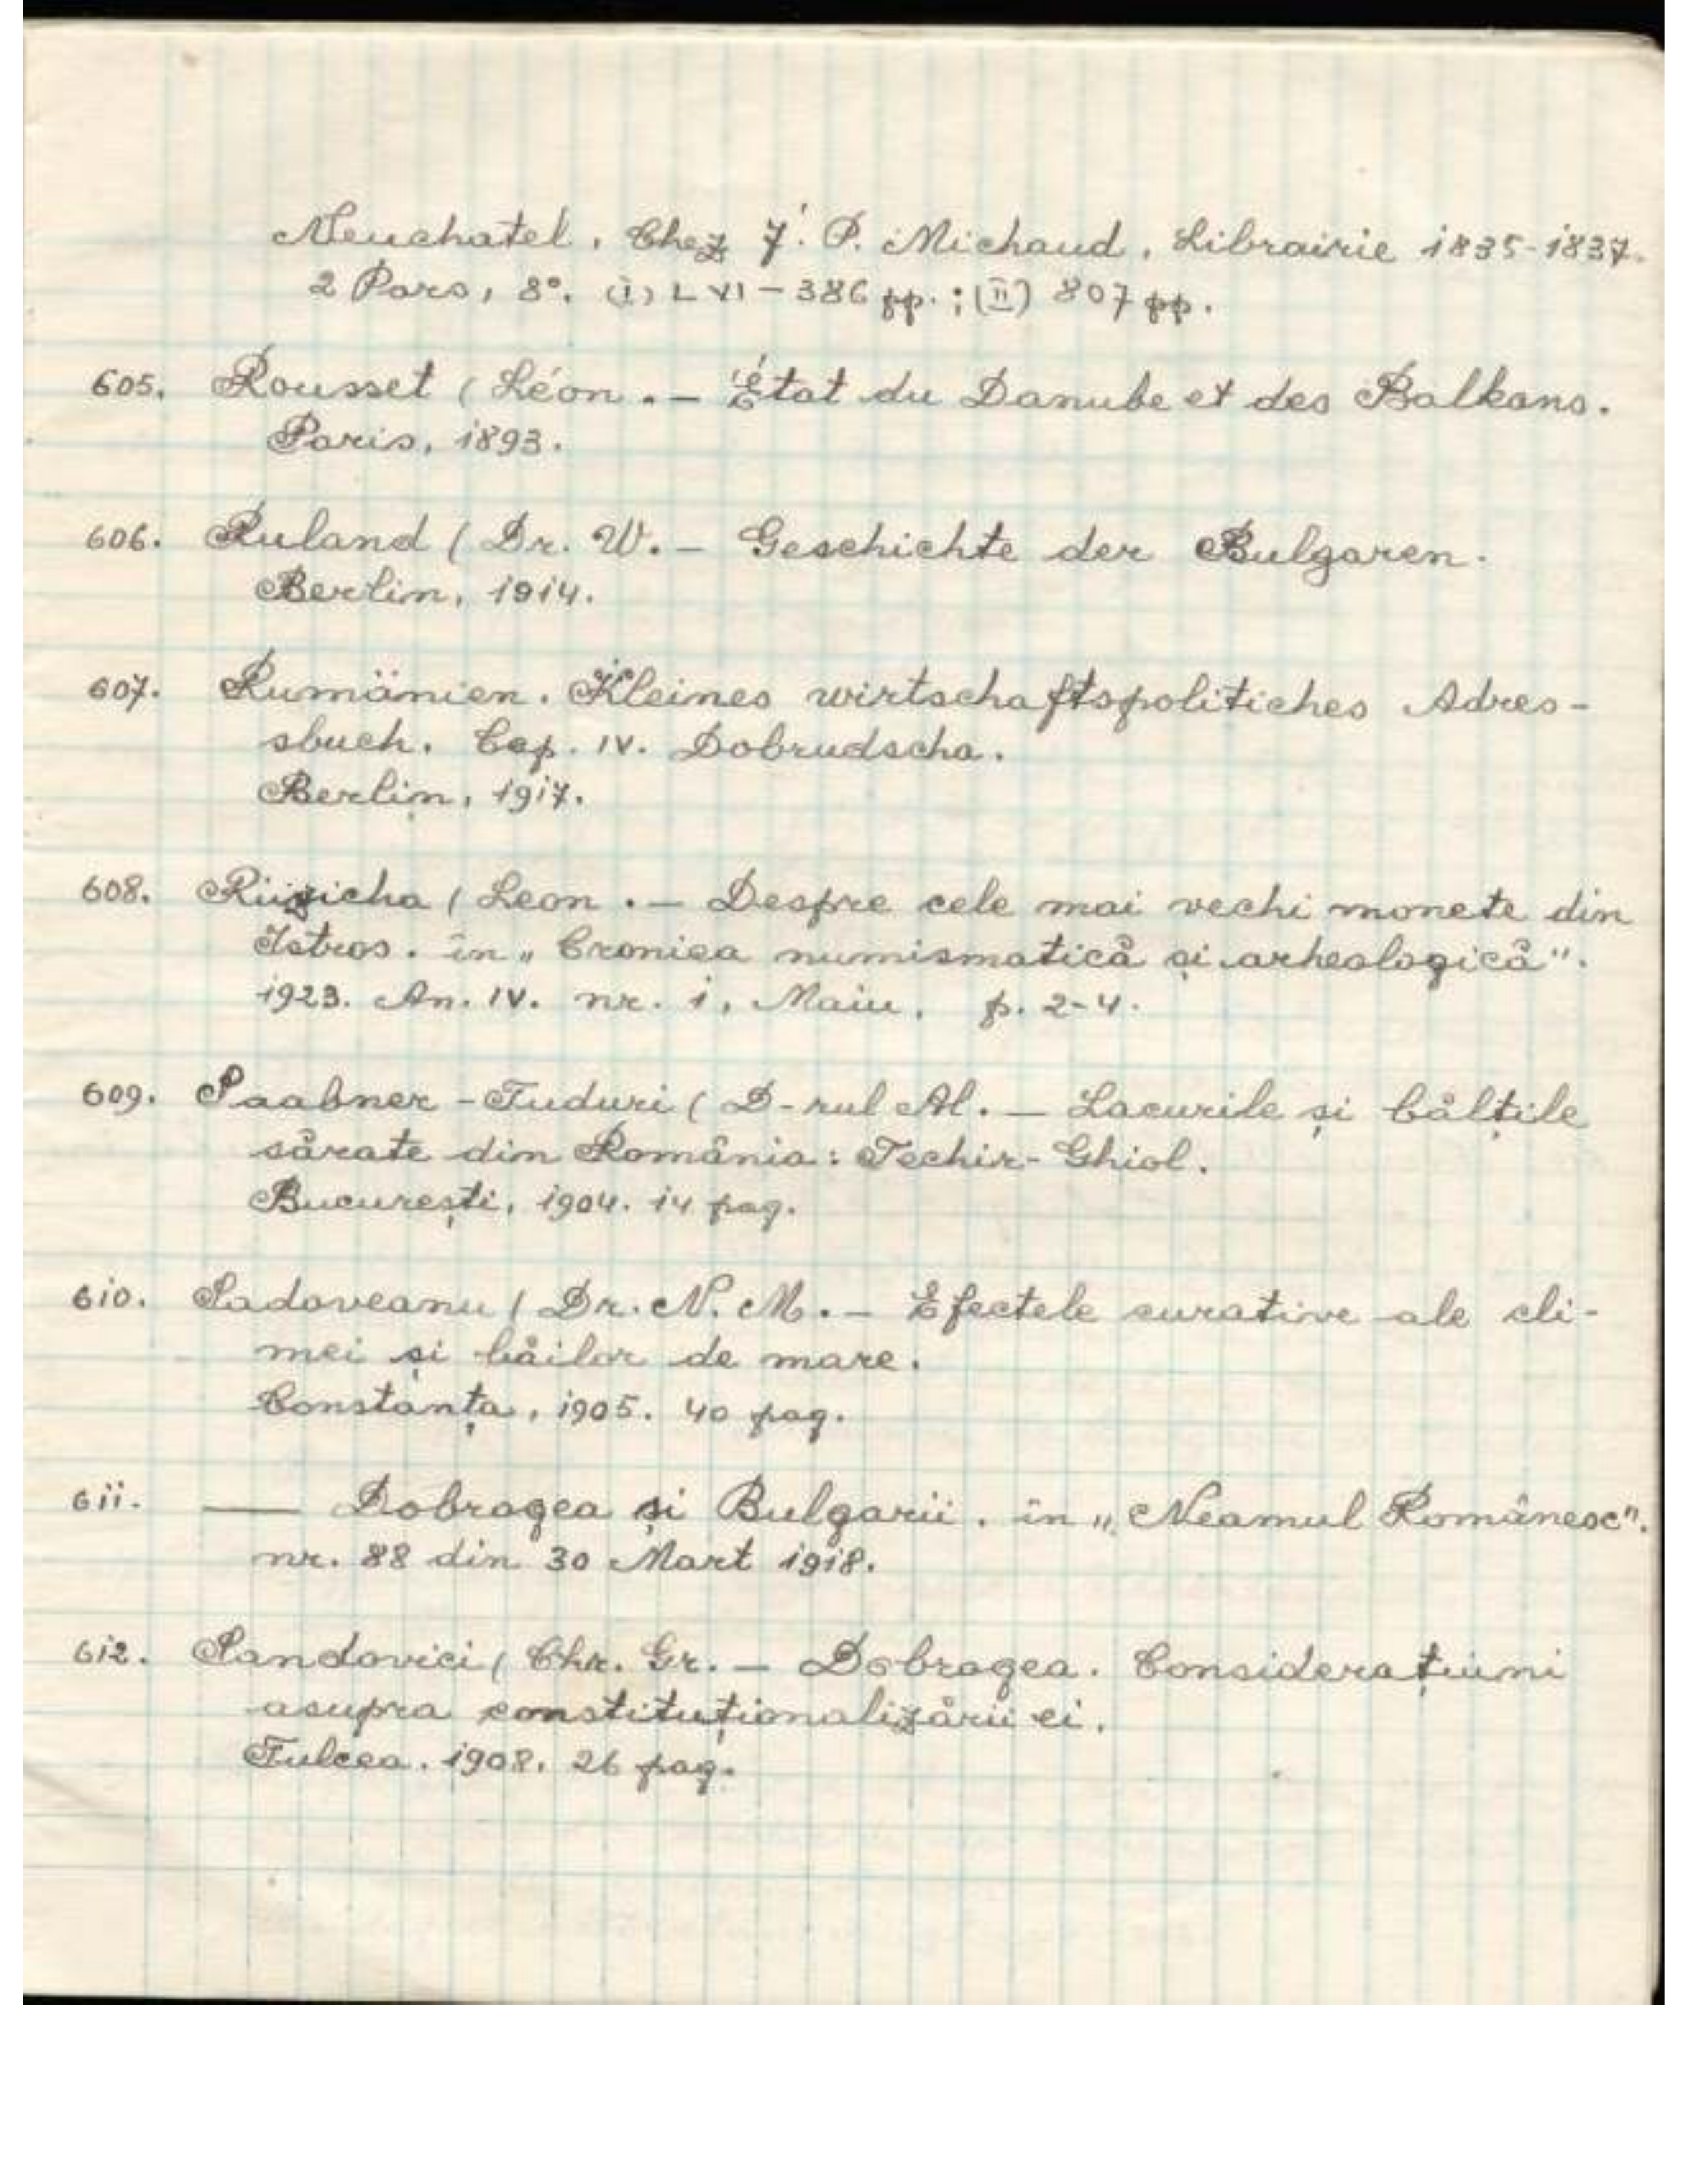 Neuchatel, Chez J. P. Michaud, Librairie 1835-1837.
2 Pars, 8°. (I) LVI-386 pp.; (II) 807 pp.
605. Rousset (Léon. — État du Danube et des Balkans.
Paris, 1893.
606. Ruland (Dr. W. — Geschichte der Bulgaren.
Berlin, 1914.
607. Rumänien. Kleines wirtschaftspolitiches Adres-
sbuch. Cap. IV. Dobrudscha.
Berlin, 1917.
608. Rüzicha (Leon. — Despre cele mai vechi monete din
Istros. în „Cronica numismatică și arheologică".
1923. An. IV. nr. 1, Maiu, p. 2-4.
609. Saabner-Tuduri (D-rul Al. — Lacurile și bălțile
sărate din România: Techir-Ghiol.
București, 1904. 14 pag.
610. Sadoveanu (Dr. N. M. — Efectele curative ale cli-
mei și băilor de mare.
Constanța, 1905. 40 pag.
611. — Dobrogea și Bulgarii. în „Neamul Românesc".
nr. 88 din 30 Mart 1918.
612. Sandovici (Chr. Gr. — Dobrogea. Considerațiuni
asupra constituționalizării ei.
Tulcea. 1908. 26 pag.